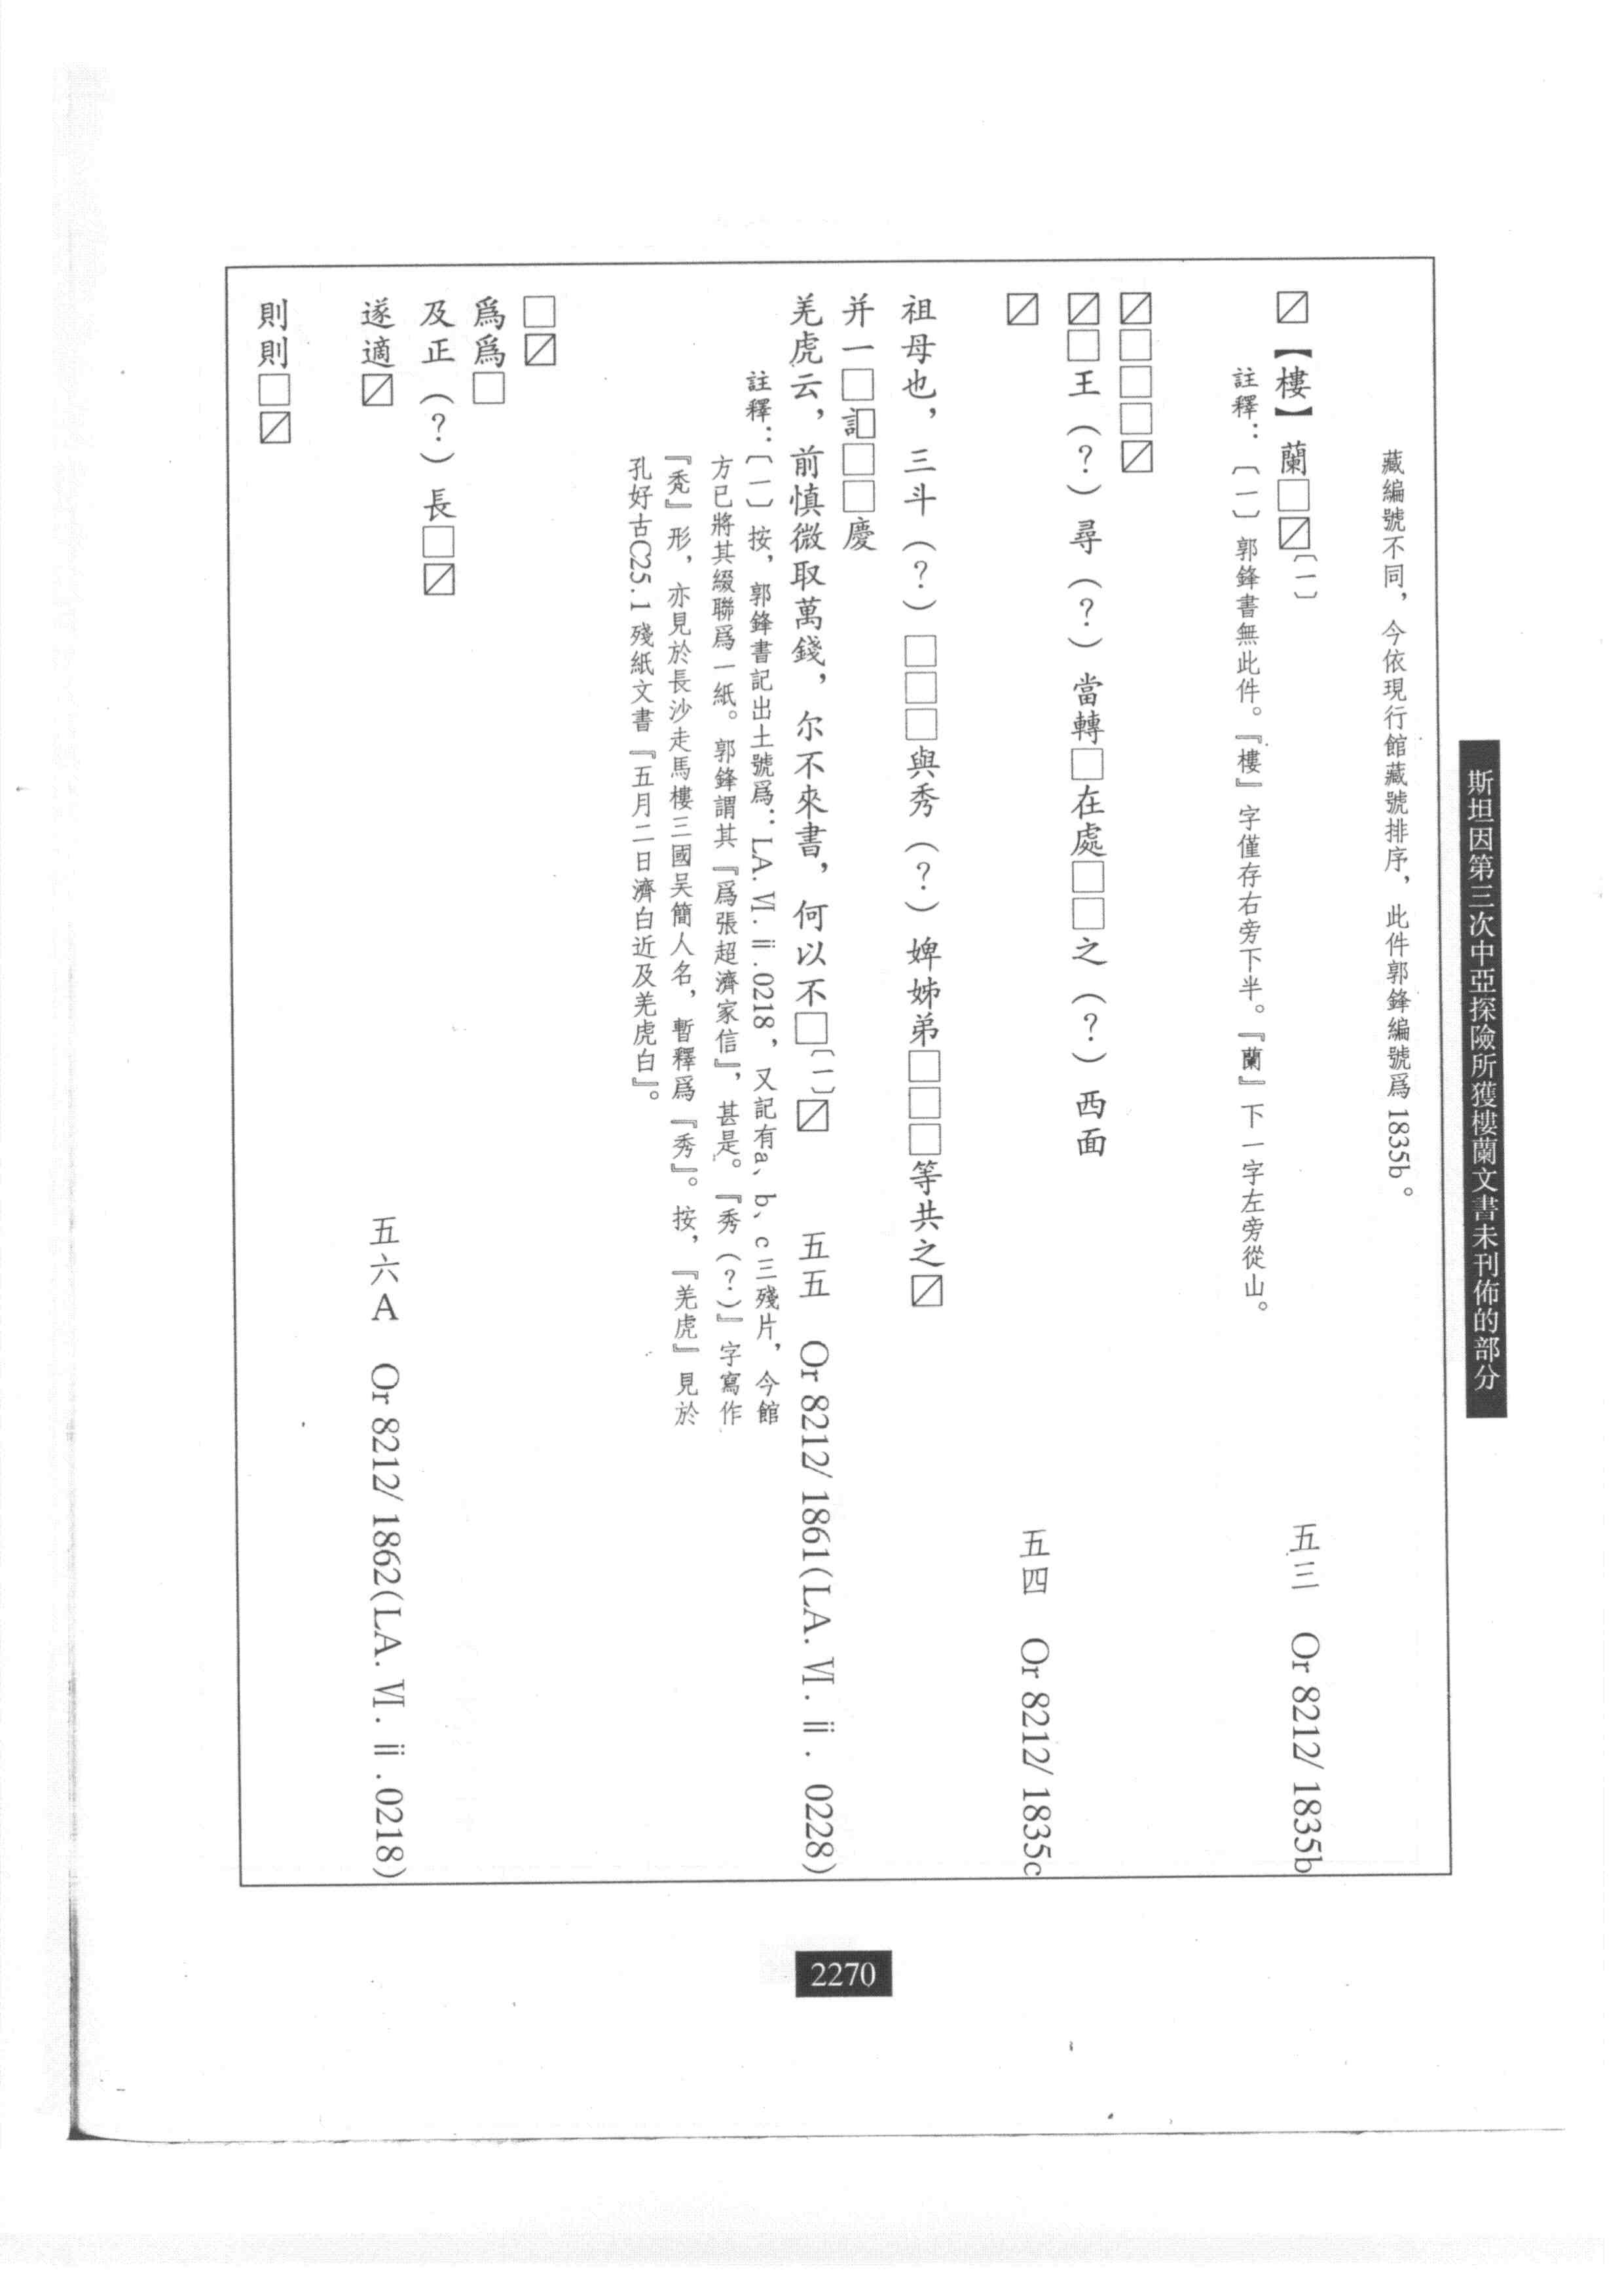 斯坦因第三次中亞探險所獲樓蘭文書未刊佈的部分
藏編號不同，今依現行館藏號排序，此件郭鋒編號爲1835b。
五三　Or 8212/ 1835b
☑【樓】蘭□☑〔一〕
註釋：〔一〕郭鋒書無此件。『樓』字僅存右旁下半。『蘭』下一字左旁從山。
五四　Or 8212/ 1835c
☑□□□☑
☑□王（？）尋（？）當轉□在處□□之（？）西面
☑
五五　Or 8212/ 1861(LA. Ⅵ. ⅱ. 0228)
祖母也，三斗（？）□□□與秀（？）婢姊弟□□□等共之☑
并一□訁□□□慶
羌虎云，前慎微取萬錢，尔不來書，何以不□〔一〕☑
註釋：〔一〕按，郭鋒書記出土號爲：LA. Ⅵ. ⅱ.0218，又記有a、b、c三殘片，今館
方已將其綴聯爲一紙。郭鋒謂其『爲張超濟家信』，甚是。『秀（？）』字寫作
『秃』形，亦見於長沙走馬樓三國吳簡人名，暫釋爲『秀』。按，『羌虎』見於
孔好古C25.1殘紙文書『五月二日濟白近及羌虎白』。
五六A　Or 8212/ 1862(LA. Ⅵ. ⅱ.0218)
□☑
爲爲□
及正（？）長□☑
遂適☑
則則□☑
2270